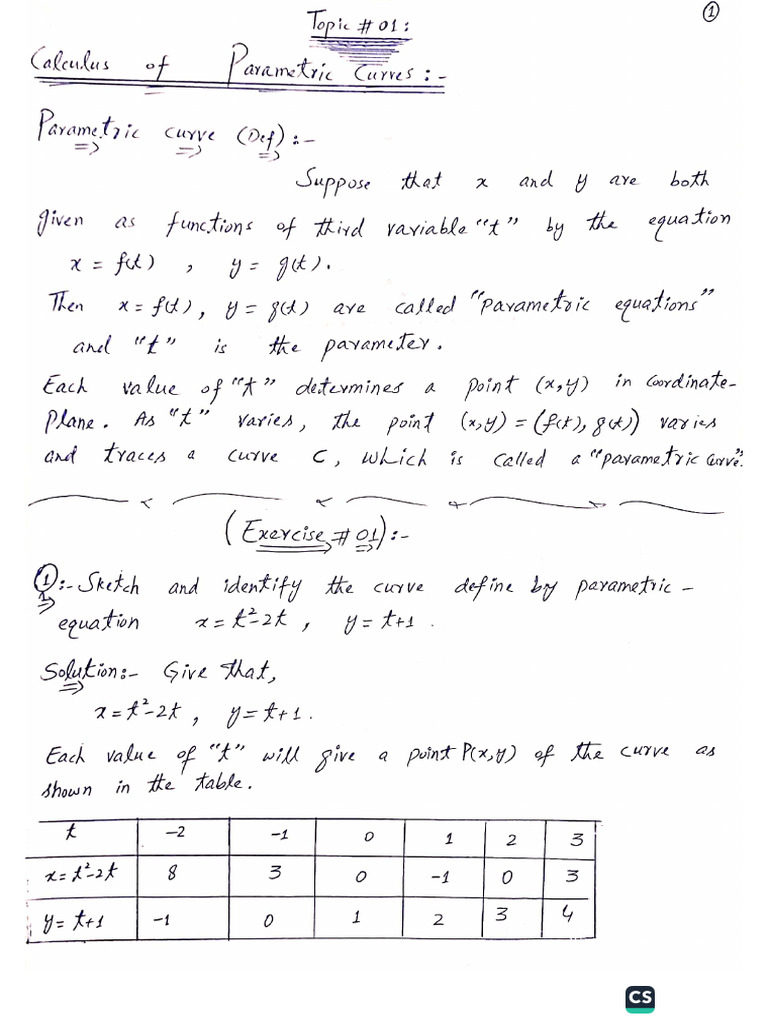 ①
Topic # 01:
Calculus of Parametric Curves:-
Parametric curve (Def):-
Suppose that x and y are both
given as functions of third variable "t" by the equation
x = f(t) , y = g(t).
Then x = f(t), y = g(t) are called "parametric equations"
and "t" is the parameter.
Each value of "t" determines a point (x,y) in coordinate-
plane. As "t" varies, the point (x,y) = (f(t), g(t)) varies
and traces a curve C, which is called a "parametric curve".
(Exercise # 01):-
①:- Sketch and identify the curve define by parametric -
equation x = t²-2t , y = t+1 .
Solution:- Give that,
x = t²-2t , y = t+1 .
Each value of "t" will give a point P(x,y) of the curve as
shown in the table.
t -2 -1 0 1 2 3
x = t²-2t 8 3 0 -1 0 3
y = t+1 -1 0 1 2 3 4
CS